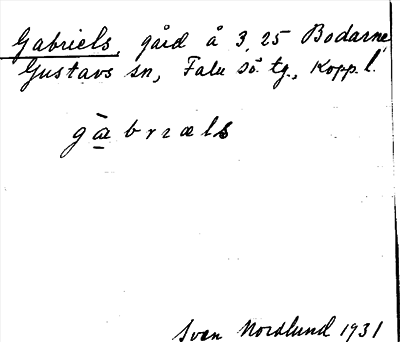 Gabriels, gård å 3,25 Bodarne,
Gustavs sn, Falu sö. tg., Kopp. l.
gàbrɪæls
Sven Nordlund 1931